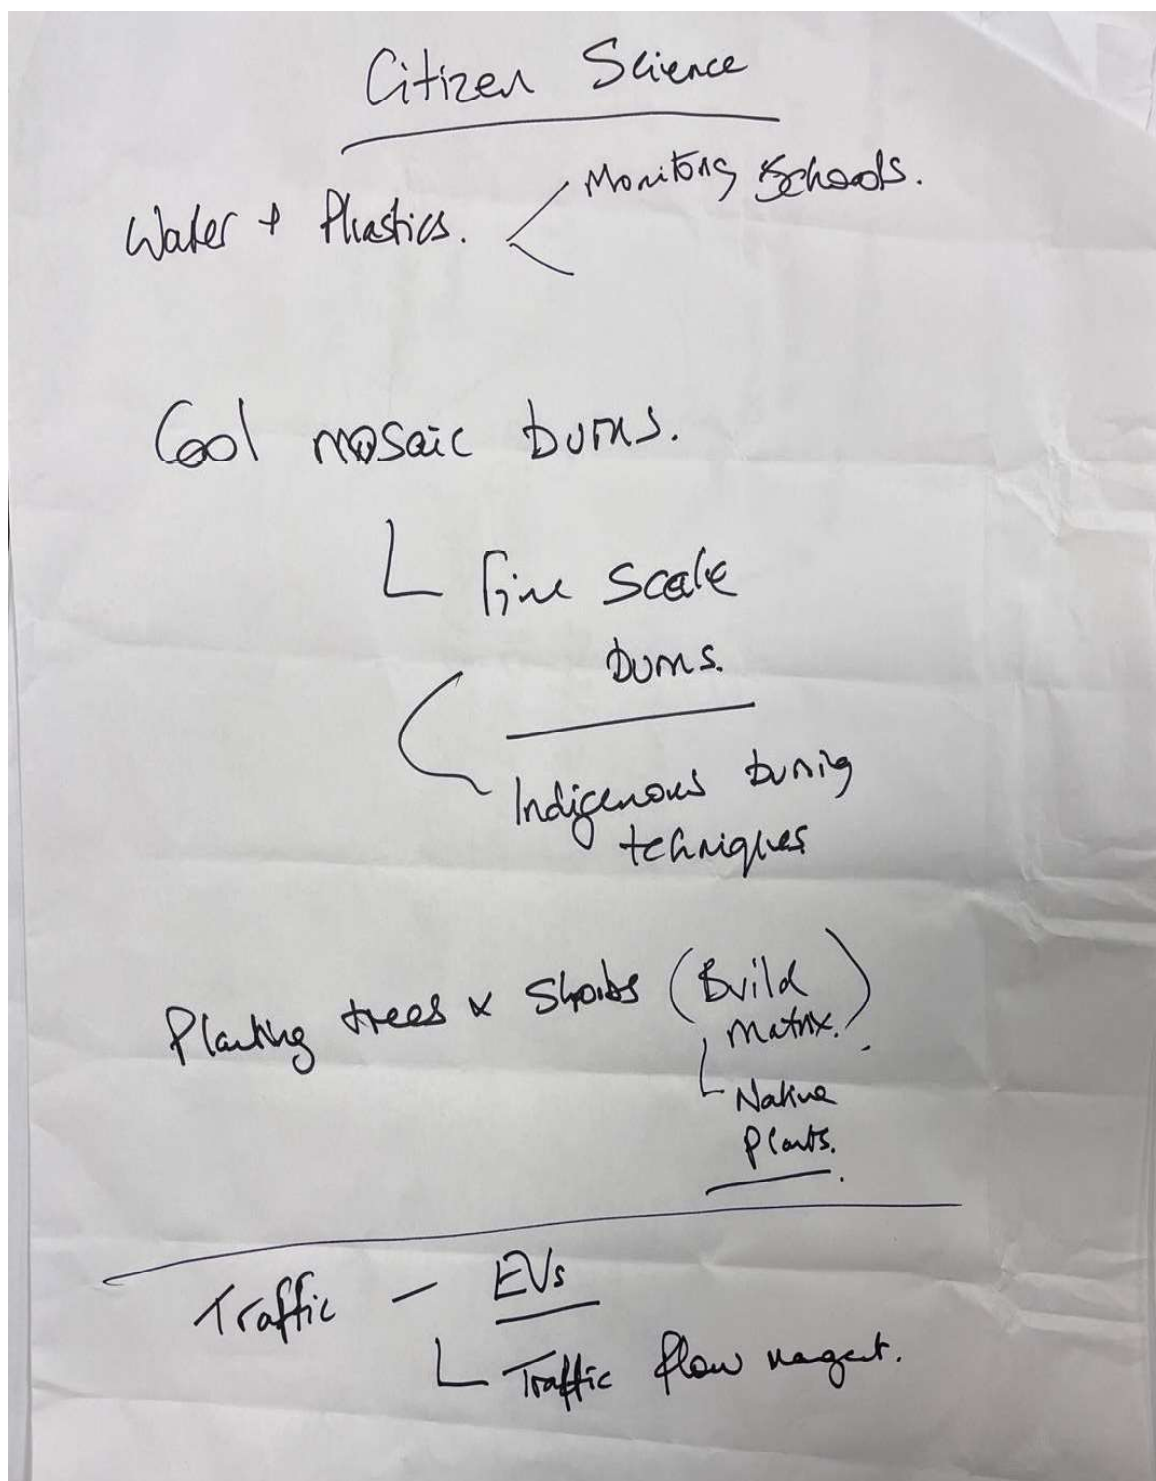 Citizen Science
Water + Plastics. Monitorg Schools.
Cool mosaic burns.
Fine scale
burns.
Indigenous burnig
techniques
Planting trees & Shrubs (Build
matrix.)
Native
Plants.
Traffic - EVs
Traffic flow